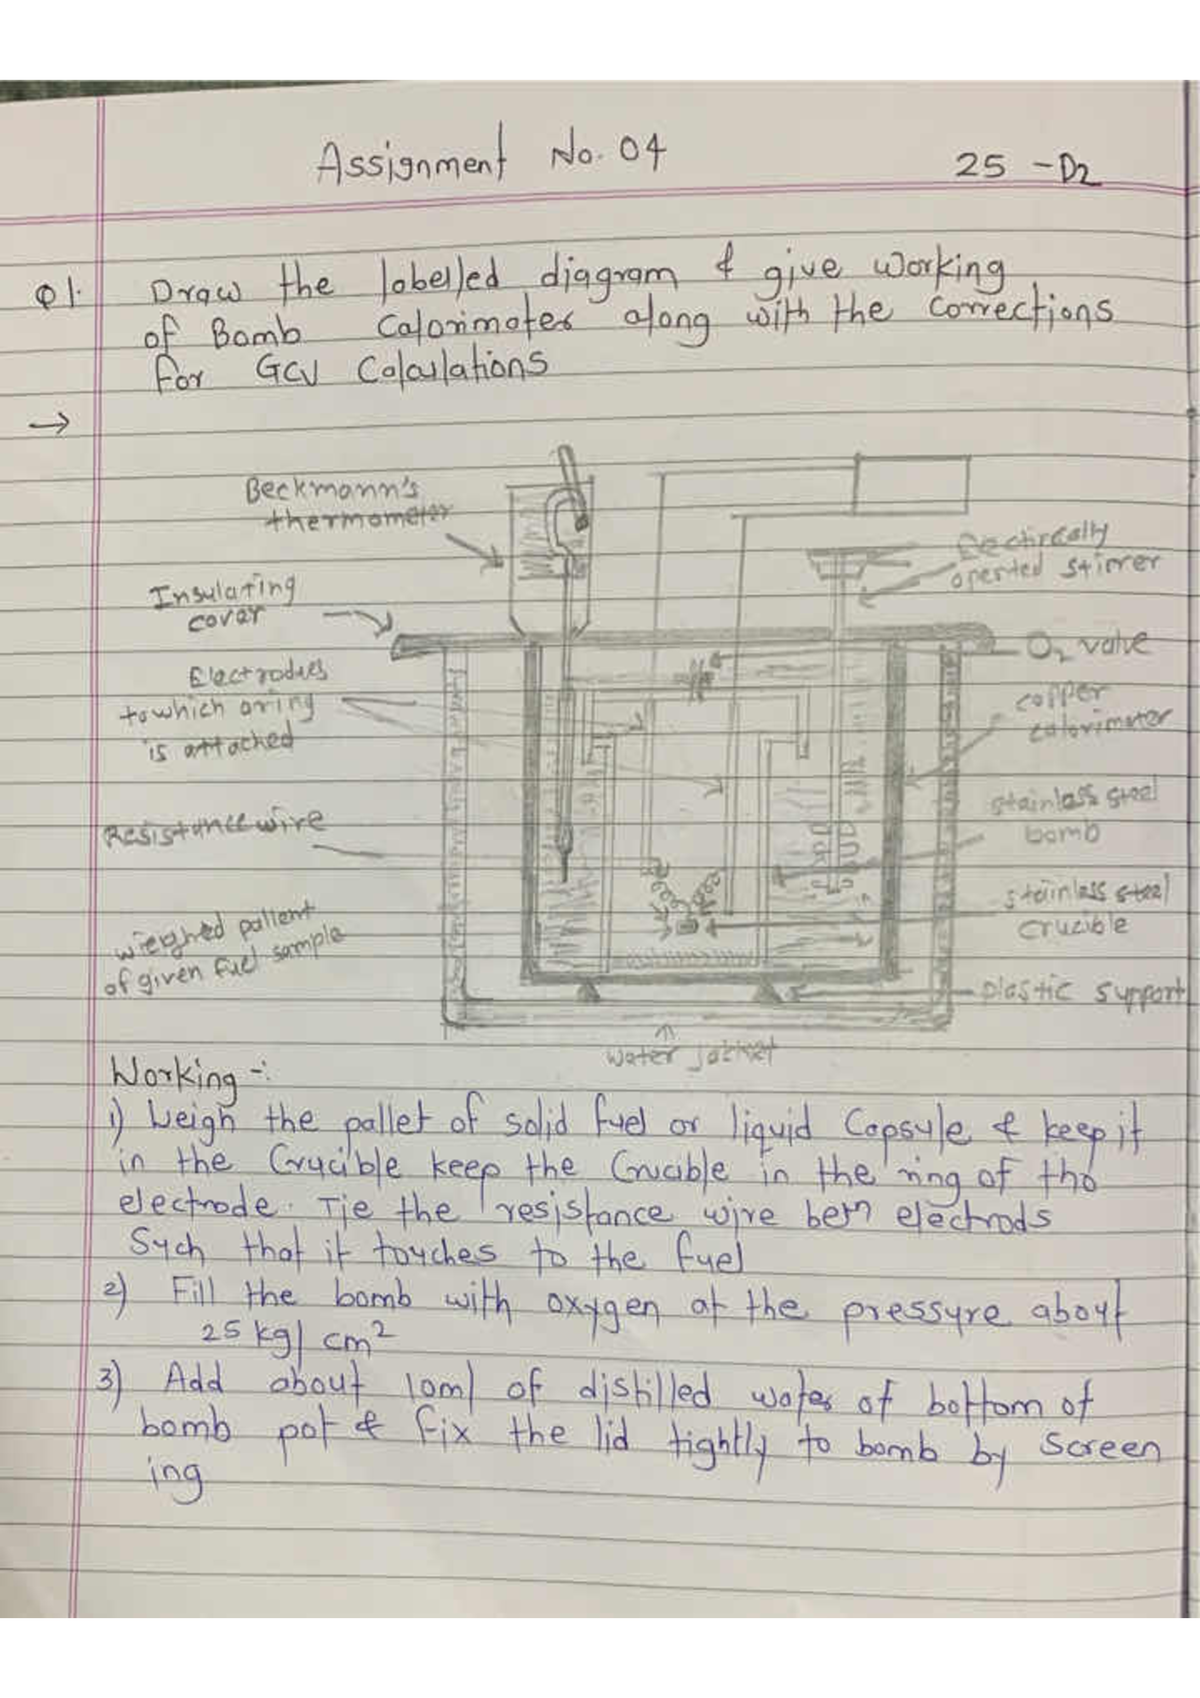 Assignment No. 04
25 - D2
Q1. Draw the labelled diagram & give working
of Bomb Calorimoter along with the corrections
for GCV Calculations
→
Beckmann's
thermometer
Insulating
cover
Electrodes
to which oring
is attached
Resistance wire
wieghed pallent
of given fuel sample
Electircally
operted stirrer
O2 valve
copper
calorimeter
stainless steel
bomb
stainless steel
crucible
plastic support
water jacket
Working -:
1) Weigh the pallet of solid fuel or liquid Capsule & keep it
in the Crucible keep the Crucible in the ring of the
electrode. Tie the resistance wire betn electrods
Such that it touches to the fuel
2) Fill the bomb with oxygen at the pressure about
25 kg/cm2
3) Add about 10ml of distilled water at bottom of
bomb pot & fix the lid tightly to bomb by screen
ing